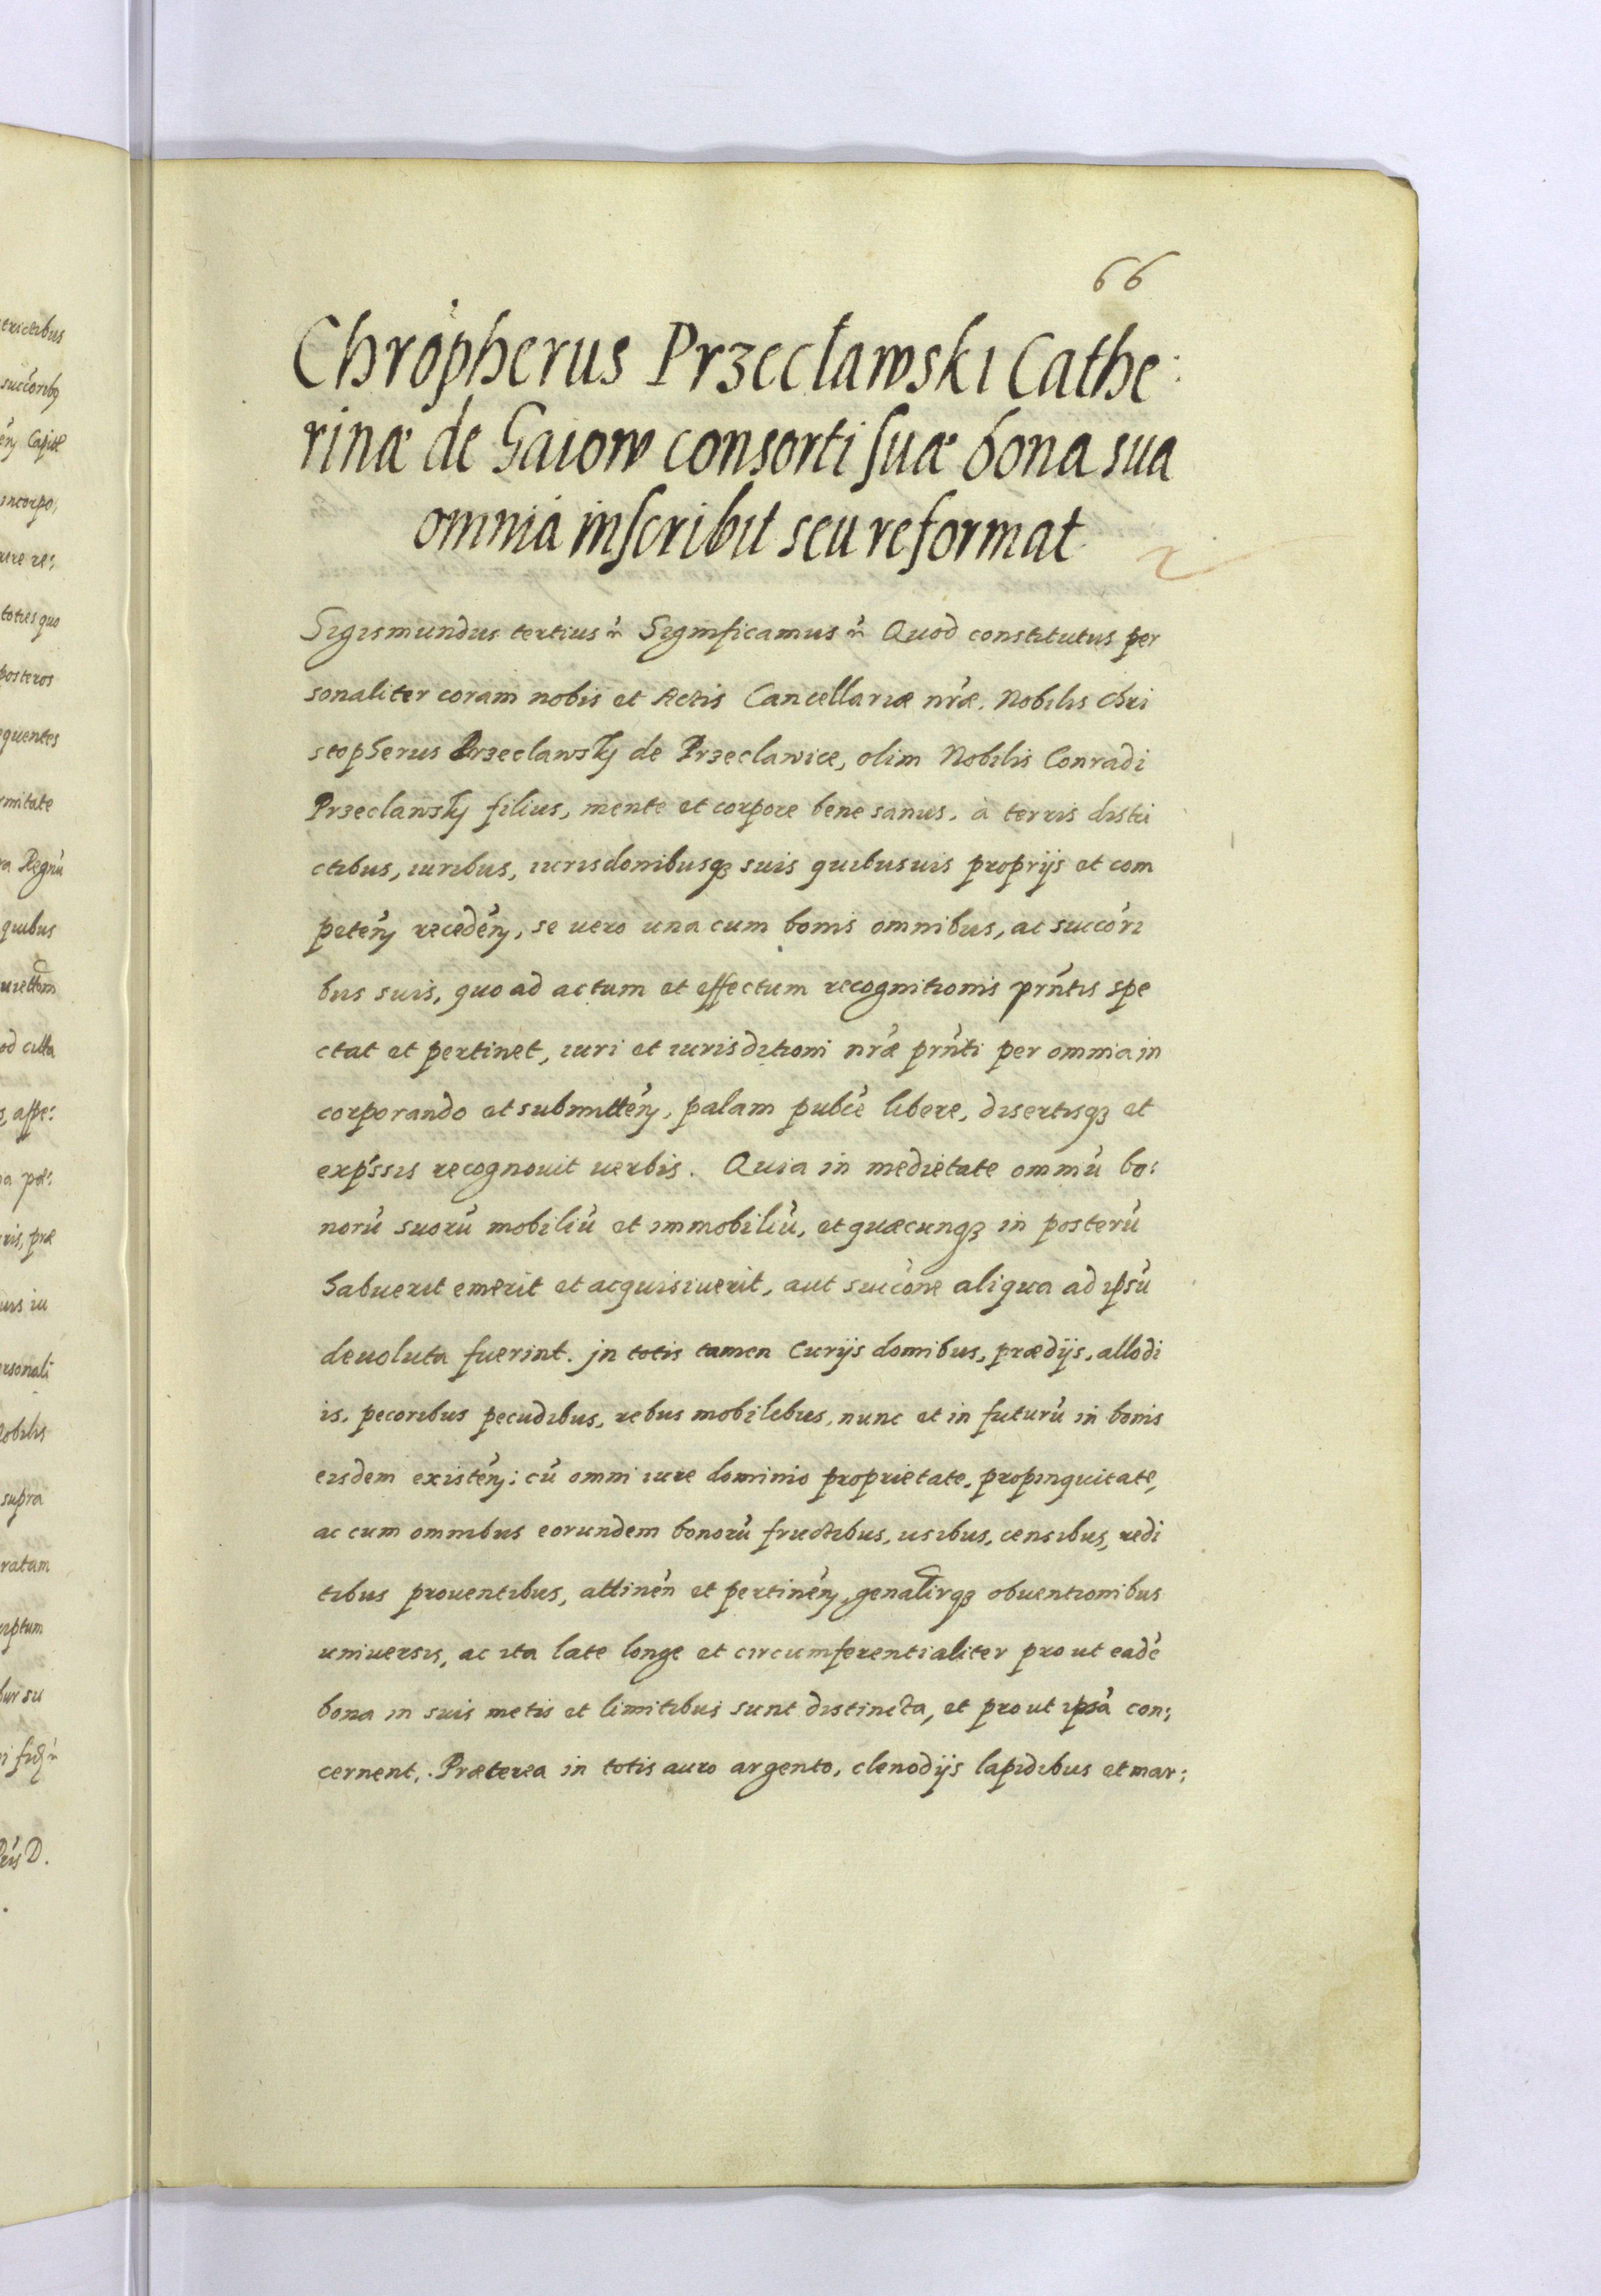 66
Chroꝑherus Przecławski Cathe:
rinæ de Gaiow consorti suæ bona sua
omnia inscribit seu reformat
Sigismundus tertius Significamus Quod constitutus per
sonaliter coram nobis et Actis Cancellariæ nræ. Nobilis Chri
stopherus Przeclawsky de Przeclawice, olim Nobilis Conradi
Przeclawsky filius, mente et corpore bene sanus, à terris distri
ctibus, iuribus, iurisdonibusqꝫ suis quibusuis proprijs et com
peteñ recedeñ, se uero una cum bonis omnibus, ac succori
bus suis, quo ad actum et effectum recognitionis prñtis spe
ctat et pertinet, iuri et iurisditioni nræ prñti per omnia in
corporando et submitteñ, palam pubce libere, disertisqꝫ et
expssis recognouit uerbis. Quia in medietate omniũ bo:
norũ suorũ mobiliũ et immobiliũ, et quæcunqꝫ in posterũ
habuerit emerit et acquisiuerit, aut succone aliqua ad ipsũ
deuoluta fuerint. jn totis tamen Curijs domibus, prædijs, allodi
is, pecoribus pecudibus, rebus mobilebus, nunc et in futurũ in bonis
eisdem existeñ: cũ omni iure dominio proprietate, propinquitate,
ac cum omnibus eorundem bonorũ fructibus, usibus, censibus, redi
tibus prouentibus, attineñ et pertineñ, genalirqꝫ obuentionibus
uniuersis, ac ita late longe et circumferentialiter prout eadẽ
bona in suis metis et limitibus sunt distincta, et prout ipsa con:
cernent. Præterea in totis auro argento, clenodijs lapidibus et mar: